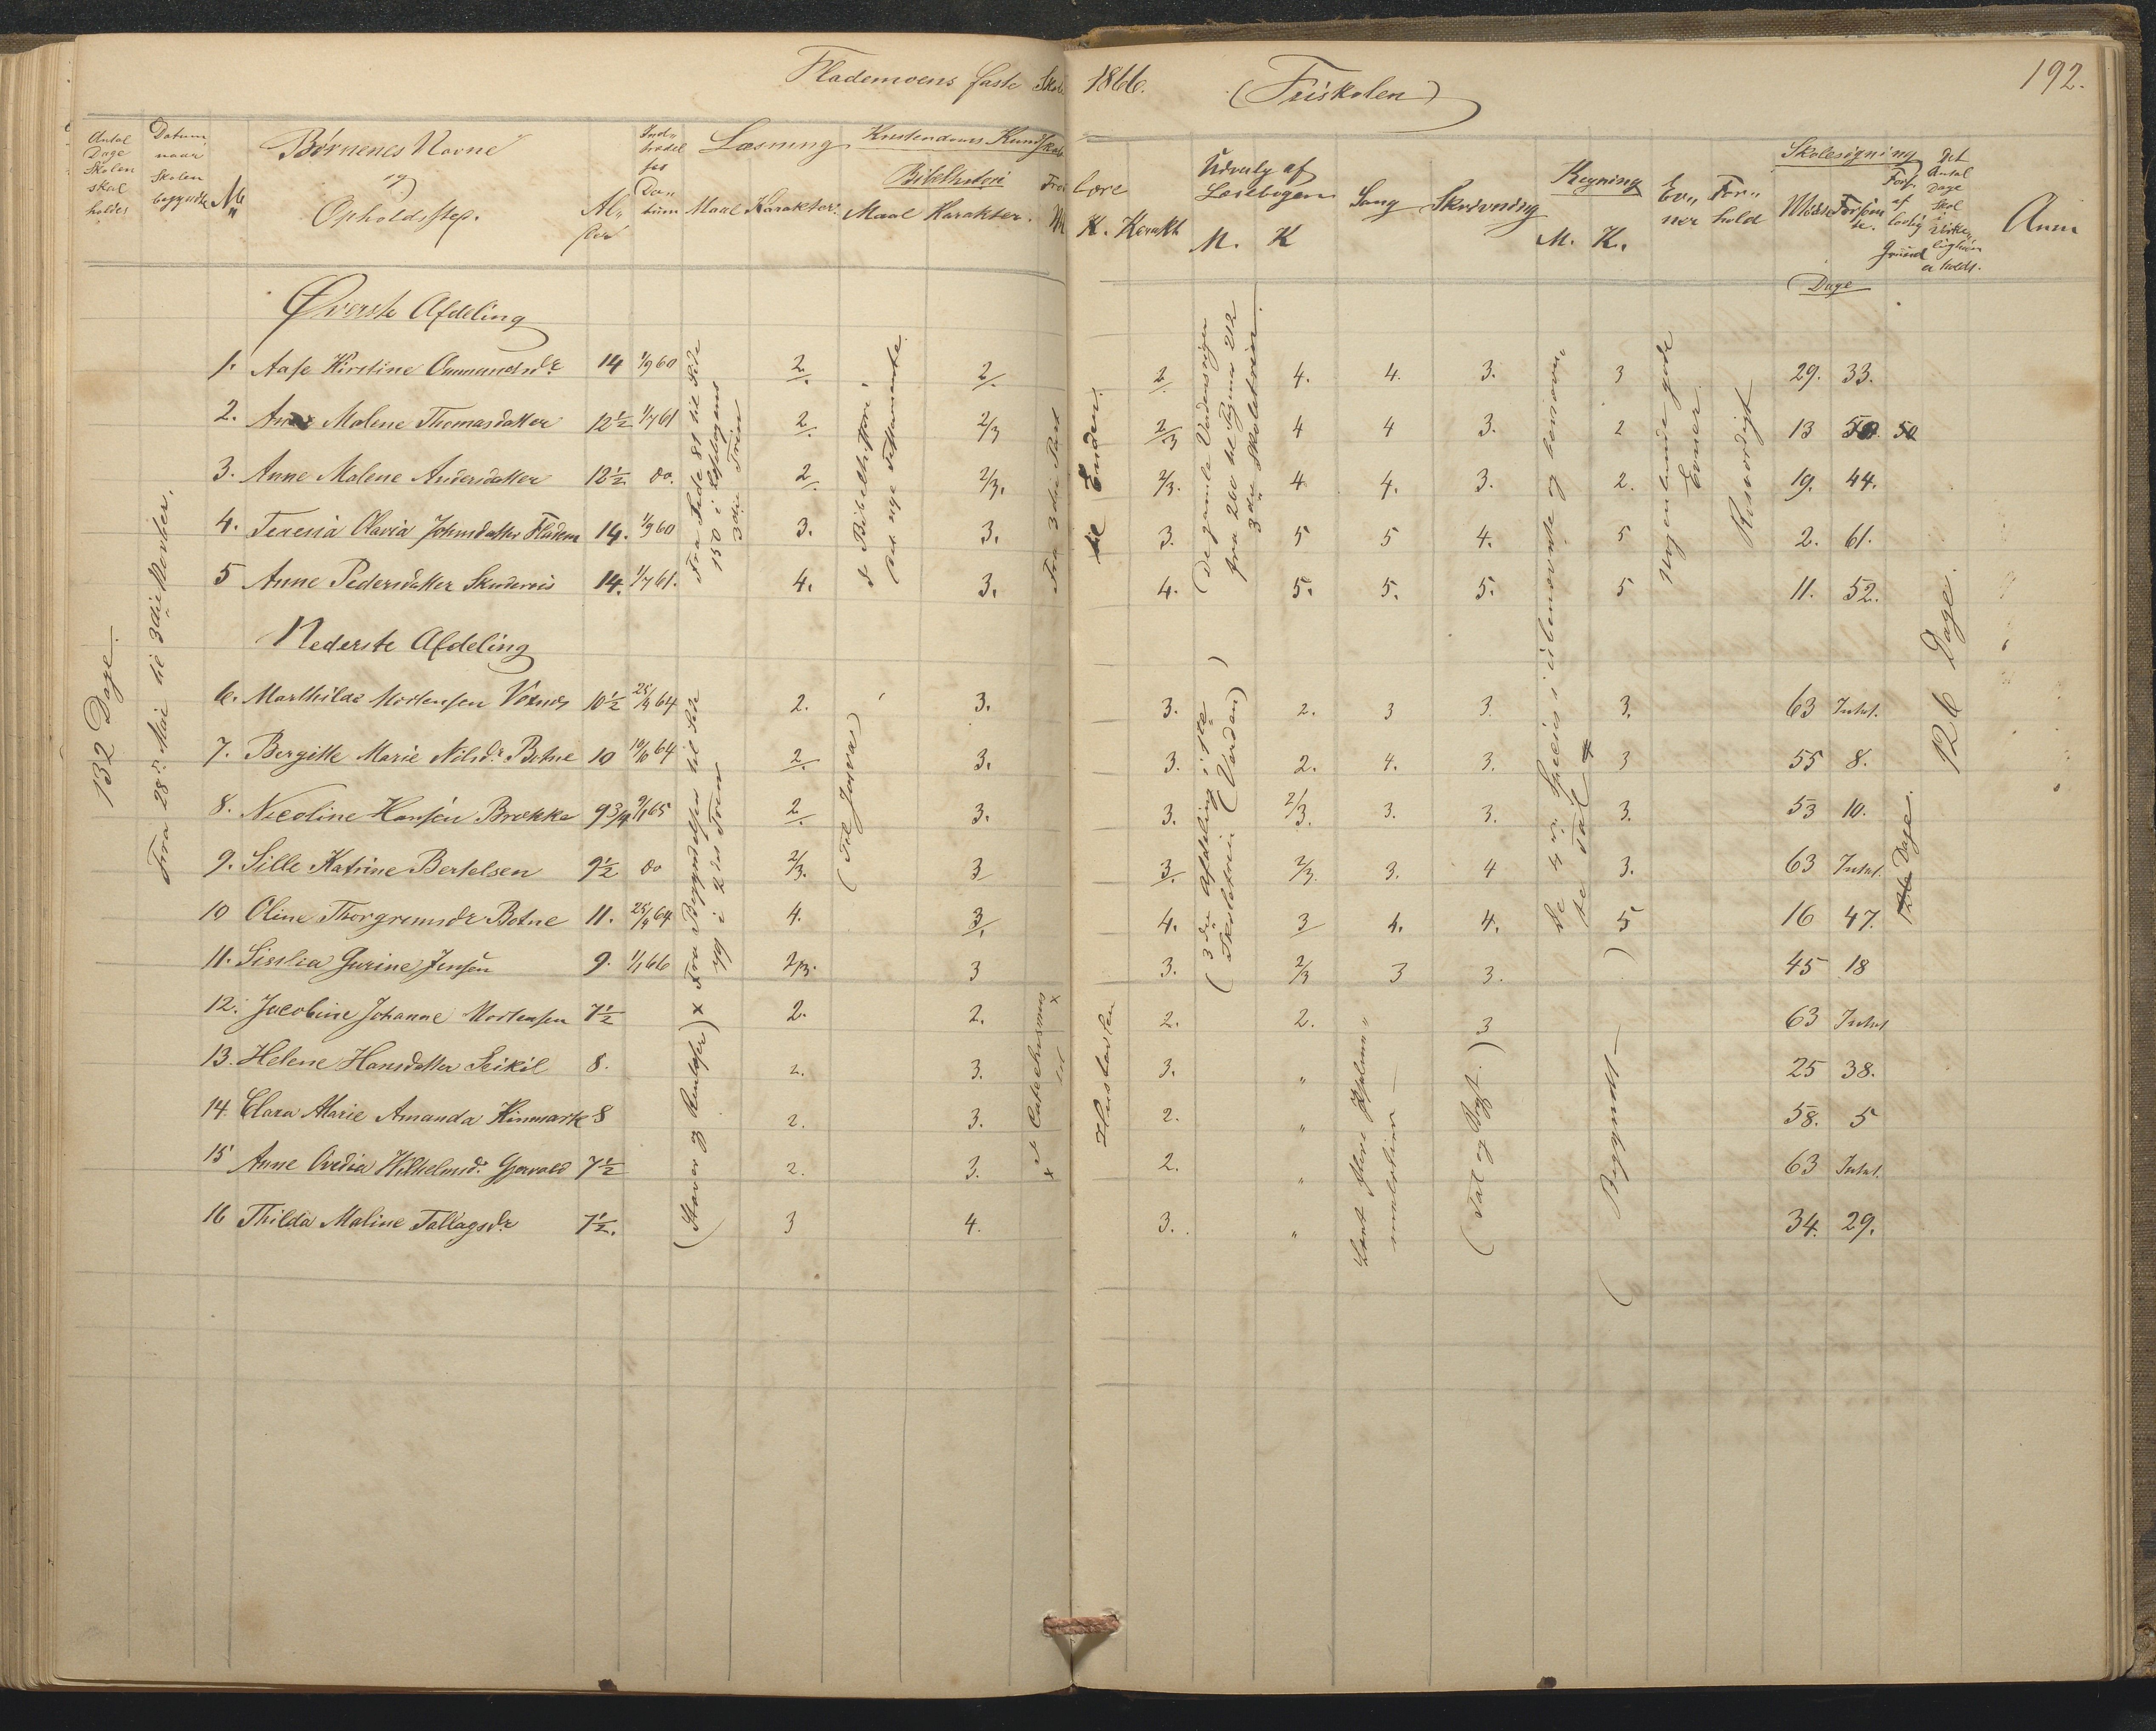 Flademoens faste Skole 1866. (Friskolen) 192.
Antal Dage Skolen skal holdes
Datum, naar Skolen begyndte
No
Børnenes Navne og Opholdssted.
Alder
Indtrædelses Datum
Læsning Maal Karakter.
Kristendoms Kundskab
Bibelhistori Maal Karakter.
Troeslære M. K. Karakt
Udvalg af Læsebogen M. K
Sang
Skrivning
Regning M. K.
Evner
Forhold
Skolesøgning
Mødte Forsømte. Fors. af lovlig Grund
Dage
Det Antal Dage Skol i Virkeligheden er holdt.
Anm
Øverste Afdeling
1. Aase Kirstine Ommundsdr 14 1/9 60 2. 2. 2 4. 4. 3. 3 29. 33.
2. Anne Malene Thomasdatter 12½ 1/7 61 2. 2/3 2/3 4 4 3. 2 13 50. 50
3. Anne Malene Andersdatter 12½ do. 2. 2/3. 2/3. 4 4. 3. 2. 19. 44.
4. Teresia Olavia Johnsdatter Fladem 14. 1/9 60 3. 3. 3. 5 5 4. 5 2. 61.
5 Anne Pedersdatter 14. 1/7 61. 4. 3. 4. 5. 5. 5. 5 11. 52.
Nederste Afdeling
6. Marthilde Mortensen 10½ 64 2. 3. 3. 2. 3 3. 3. 63 Intet.
7. Bergitte Marie Nilsdr Botne 10 64 2. 3. 3. 2. 4. 3. 3 55 8.
8. Nicoline Hansen Brække 9¾ 65 2. 3. 3. 2/3. 3. 3. 3. 53 10.
9. Sille Katrine Bertelsen 9½ do 2/3. 3 3. 2/3. 3. 4 3. 63 Intet.
10 Oline Thorgrimsdr Botne 11. 64 4. 3. 4. 3 4. 4. 5 16 47.
11. Gurine Jensen 9. 1/1 66 2/3. 3 3. 2/3 3 3. 45 18
12. Jacobine Johanne Mortensen 7½ 2. 2. 2. 2. 3 63 Intet
13. Helene Hansdatter 8. 2. 3. 3. " 25 38.
14. Clara Marie Amanda Kinmark 8 2. 3. 2. " 58. 5
15 Anne Ovedia Wilhelmsd. Gjervold 7½ 2. 3. 2. " 63 Intet.
16 Thilda Maline Tallagsdr 7½. 3 4. 3. " 34. 29.
132 Dage.
Fra 28de Mai til 3die Oktober.
Fra Side 81 til Side 150 i Læsebogens 3die Trin
Fra Begyndelsen til Side 99 i 2det Trin
(Staver og x
1 Bibelhistori og nye Testamente.
(Til Josva)
Fra 3die Part til Enden.
x 1 Catechismus til Hustavlen
(De gamle Nordens Sagn fra 200 til Pagina 212 3die Skoletrin.
(3die Afdeling i 1ste Skoletrin (Norden)
Lært flere Psalmemelodier
(Tal og Bogst.)
De 4 Species i ubenævnte og benævnte Tal
(Begyndt)
Nogenlunde gode Evner
Rosværdigt
126 Dage.
126 Dage.